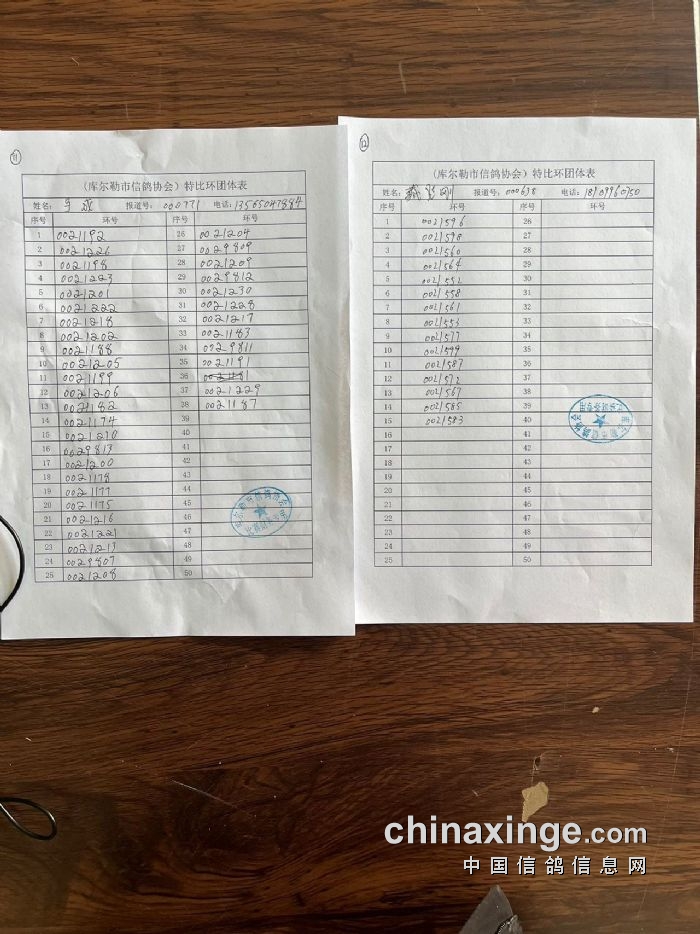 11
（库尔勒市信鸽协会）特比环团体表
姓名： 报道号： 000771 电话：13565047884
序号 环号 序号 环号
1 0021192 26 0021204
2 0021226 27 0029809
3 0021198 28 0021209
4 0021223 29 0029812
5 0021201 30 0021230
6 0021222 31 0021228
7 0021218 32 0021217
8 0021202 33 0021183
9 0021188 34 0029811
10 0021205 35 0021191
11 0021199 36
12 0021206 37 0021229
13 0021182 38 0021187
14 0021174 39
15 0021210 40
16 0029813 41
17 0021200 42
18 0021178 43
19 0021177 44
20 0021175 45
21 0021216 46
22 0021221 47
23 0021213 48
24 0029807 49
25 0021208 50
12
（库尔勒市信鸽协会）特比环团体表
姓名： 刚 报道号： 000638 电话： 18109960750
序号 环号 序号 环号
1 0021596 26
2 0021598 27
3 0021560 28
4 0021564 29
5 0021552 30
6 0021558 31
7 0021561 32
8 0021553 33
9 0021577 34
10 0021599 35
11 0021587 36
12 0021572 37
13 0021567 38
14 0021585 39
15 0021583 40
16 41
17 42
18 43
19 44
20 45
21 46
22 47
23 48
24 49
25 50
库尔勒市信鸽协会
chinaxinge.com
中国信鸽信息网